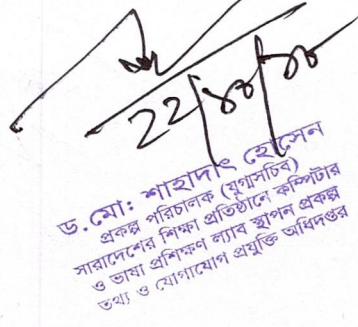 ড. মো: শাহাদাৎ হোসেন
প্রকল্প পরিচালক (যুগ্মসচিব)
সারাদেশের শিক্ষা প্রতিষ্ঠানে কম্পিটার
ও ভাষা প্রশিক্ষণ ল্যাব স্থাপন প্রকল্প
তথ্য ও যোগাযোগ প্রযুক্তি অধিদপ্তর